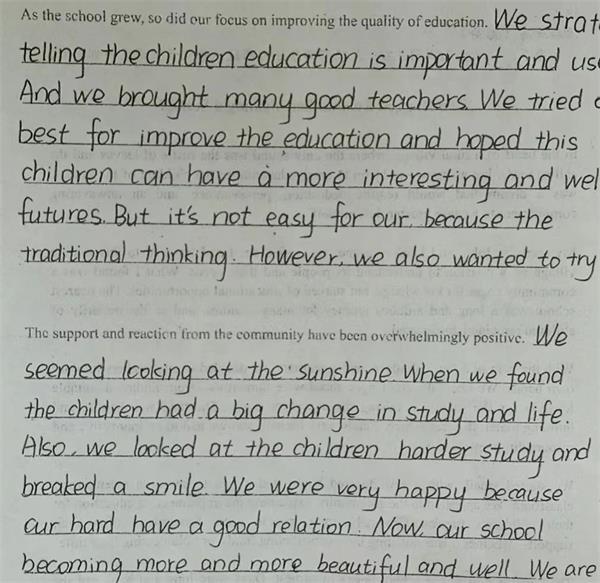 As the school grew, so did our focus on improving the quality of education. We strat
telling the children education is important and us
And we brought many good teachers. We tried
best for improve the education and hoped this
children can have a more interesting and wel
futures. But it's not easy for our, because the
traditional thinking. However, we also wanted to try
The support and reaction from the community have been overwhelmingly positive. We
seemed looking at the sunshine. When we found
the children had a big change in study and life.
Also, we looked at the children harder study and
breaked a smile. We were very happy because
our hard have a good relation. Now, our school
becoming more and more beautiful and well. We are